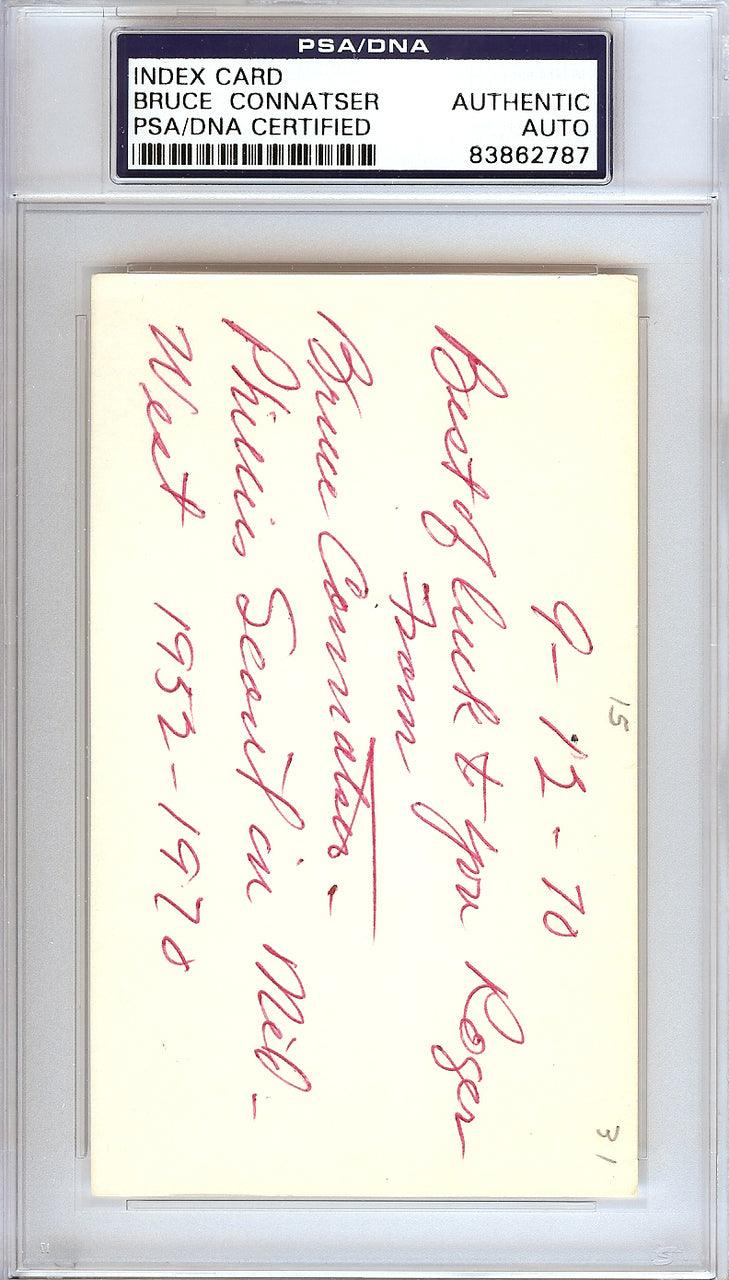 PSA/DNA
INDEX CARD
BRUCE CONNATSER AUTHENTIC
PSA/DNA CERTIFIED AUTO
83862787
15
31
9-12-70
Best of luck to you Roger
From
Bruce Connatser -
Phillies Scout in Mid-
West 1952-1970